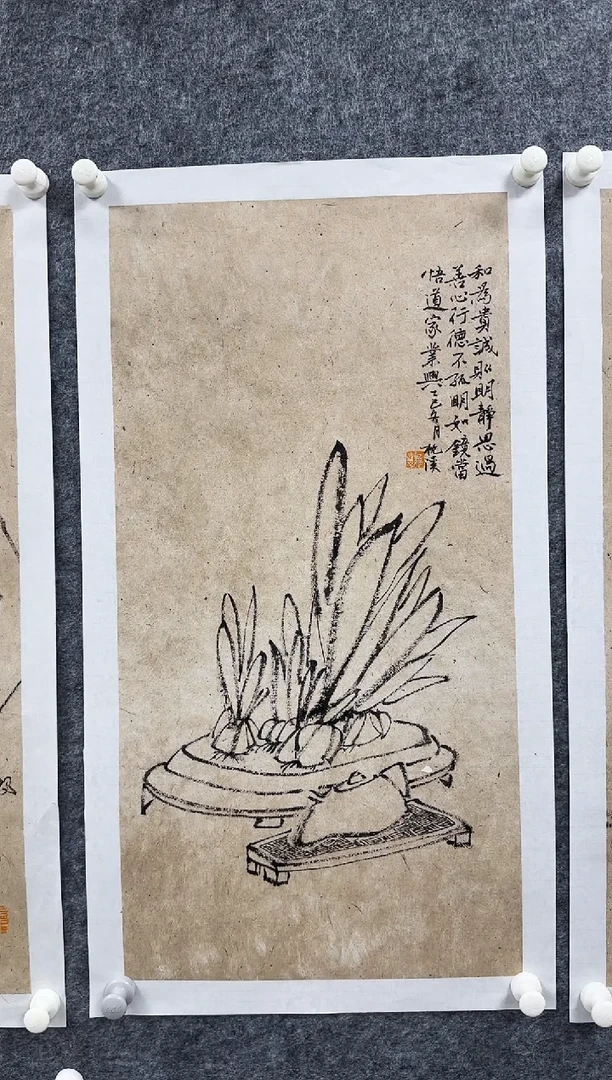 和為貴誠取明靜思過
善心行德不孤明如鏡當
悟道家業興